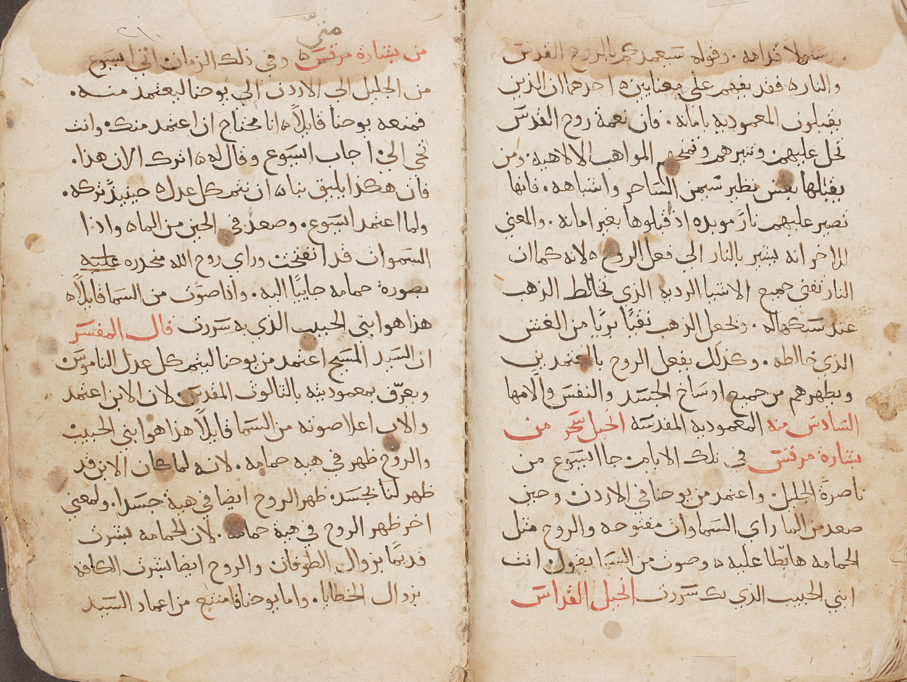 قدامه . وقوله سيعمدكم بالروح القدس
والناره فقد يفهم علي معنايين ه احدهما ان الذين
يقبلون المعموديه بامانه . فان نعمة روح القدس
تحل عليهم وتنيرهم وتمنحهم المواهب الالاهيه . ومن
يقبلها بغش نظير سيمن الساحر واشباهه . فانها
تصير عليهم نار موبده اذ قبلوها بغير امانه . والمعني
الاخر انه يشير بالنار الي فعل الروح ه لانه كما ان
النار تفني جميع الاشيا الرديه الذي تخالط الذهب
عند سبكها له . وتجعل الذهب نقيًا بريًا من الغش
الذي خالطه . وكذلك يفعل الروح بالمعتمدين
ويطهرهم من جميع اوساخ الجسد والنفس والامها
السادس منه المعموديه المقدسه انجيل سحر من
بشارة مرقس في تلك الايام جا ايسوع من
ناصرة الجليل . واعتمد من يوحنا في الاردن وحين
صعد من الما راي السماوات مفتوحه والروح مثل
الحمامه هابطًا عليه ه وصوت من السما يقول انت
ابني الحبيب الذي بك سررت انجيل القداس
متيّ
من بشارة مرقس ه وفي ذلك الزمان اتي ايسوع
من الجليل الي الاردن الي يوحنا ليعتمد منه .
فمنعه يوحنا قايلًا ه انا محتاج ان اعتمد منك . وانت
تجي الي ه اجاب ايسوع وقال له ه اترك الان هذا .
فان هكذا يليق بنا ه ان نتمم كل عدل ه حينيذ تركه .
ولما اعتمد ايسوع . وصعد في الحين من الما ه واذا
السموات قد انفتحت وراي روح الله منحدره عليه
بصورة حمامه جاييًا اليه . واذا صوت من السما قايلًا ه
هذا هو ابني الحبيب الذي به سررت قال المفسر
ان السيد المسيح اعتمد من يوحنا ليتمم كل عدل الناموس
ويعرّف بمعموديته بالثالوث المقدس . لان الابن اعتمد
والاب اعلا صوته من السما قايلًا هذا هو ابني الحبيب
والروح ظهر في هية حمامه . لانه لما كان الابن قد
ظهر لنا بجسد . ظهر الروح ايضا في هية جسد . ولمعني
اخر ظهر الروح في هية حمامه . لان الحمامه بشرت
قديمًا بزوال الطوفان والروح ايضا بشرت الكافه
بزوال الخطايا . واما يوحنا فامتنع من اعماد السيد